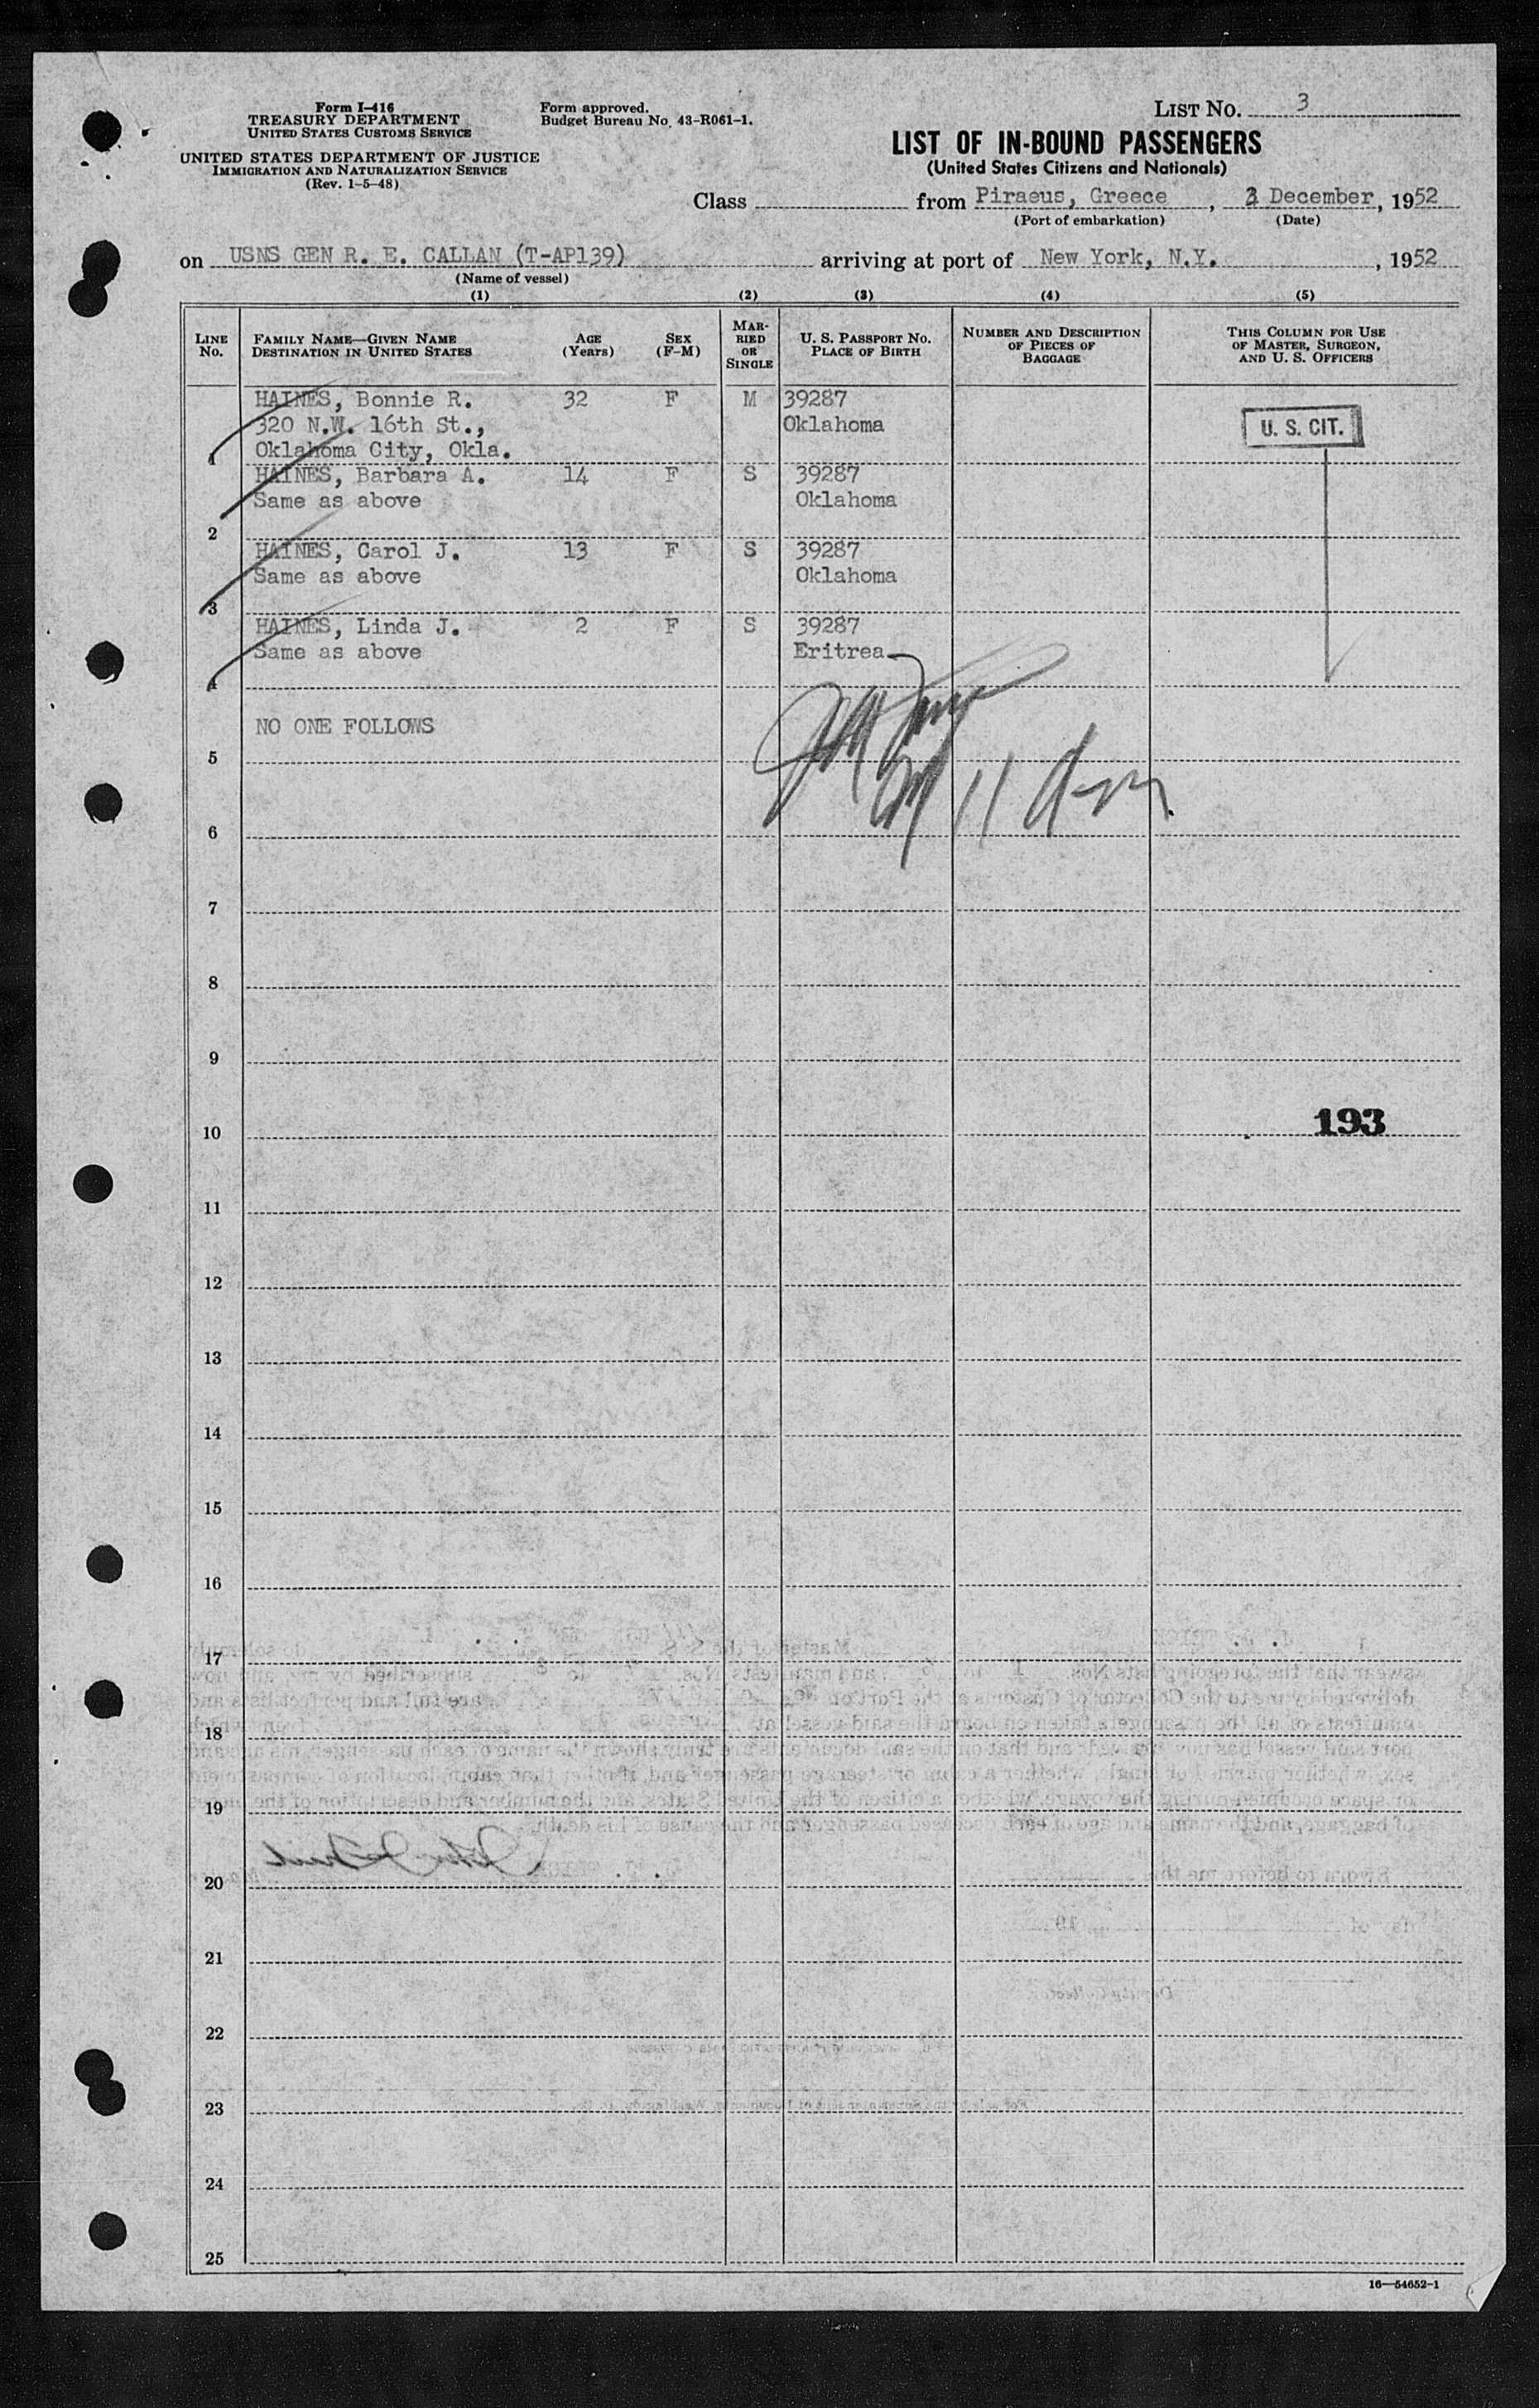 Form I-416
TREASURY DEPARTMENT
UNITED STATES CUSTOMS SERVICE
UNITED STATES DEPARTMENT OF JUSTICE
IMMIGRATION AND NATURALIZATION SERVICE
(Rev. 1-5-48)
Form approved.
Budget Bureau No. 43-R061-1.
LIST NO. 3
LIST OF IN-BOUND PASSENGERS
(United States Citizens and Nationals)
Class from Piraeus, Greece, 3 December, 1952
(Port of embarkation) (Date)
on USNS GEN R. E. CALLAN (T-AP139) arriving at port of New York, N.Y., 1952
(Name of vessel)
(1) (2) (3) (4) (5)
LINE No. FAMILY NAME—GIVEN NAME DESTINATION IN UNITED STATES AGE (Years) SEX (F-M) MARRIED OR SINGLE U. S. PASSPORT NO. PLACE OF BIRTH NUMBER AND DESCRIPTION OF PIECES OF BAGGAGE THIS COLUMN FOR USE OF MASTER, SURGEON, AND U. S. OFFICERS
HAINES, Bonnie R. 32 F M 39287
320 N.W. 16th St., Oklahoma U. S. CIT.
1 Oklahoma City, Okla.
HAINES, Barbara A. 14 F S 39287
Same as above Oklahoma
2
HAINES, Carol J. 13 F S 39287
Same as above Oklahoma
3
HAINES, Linda J. 2 F S 39287
Same as above Eritrea
4
NO ONE FOLLOWS
5
6
7
8
9
10 193
11
12
13
14
15
16
17
18
19
20
21
22
23
24
25
16—54652-1